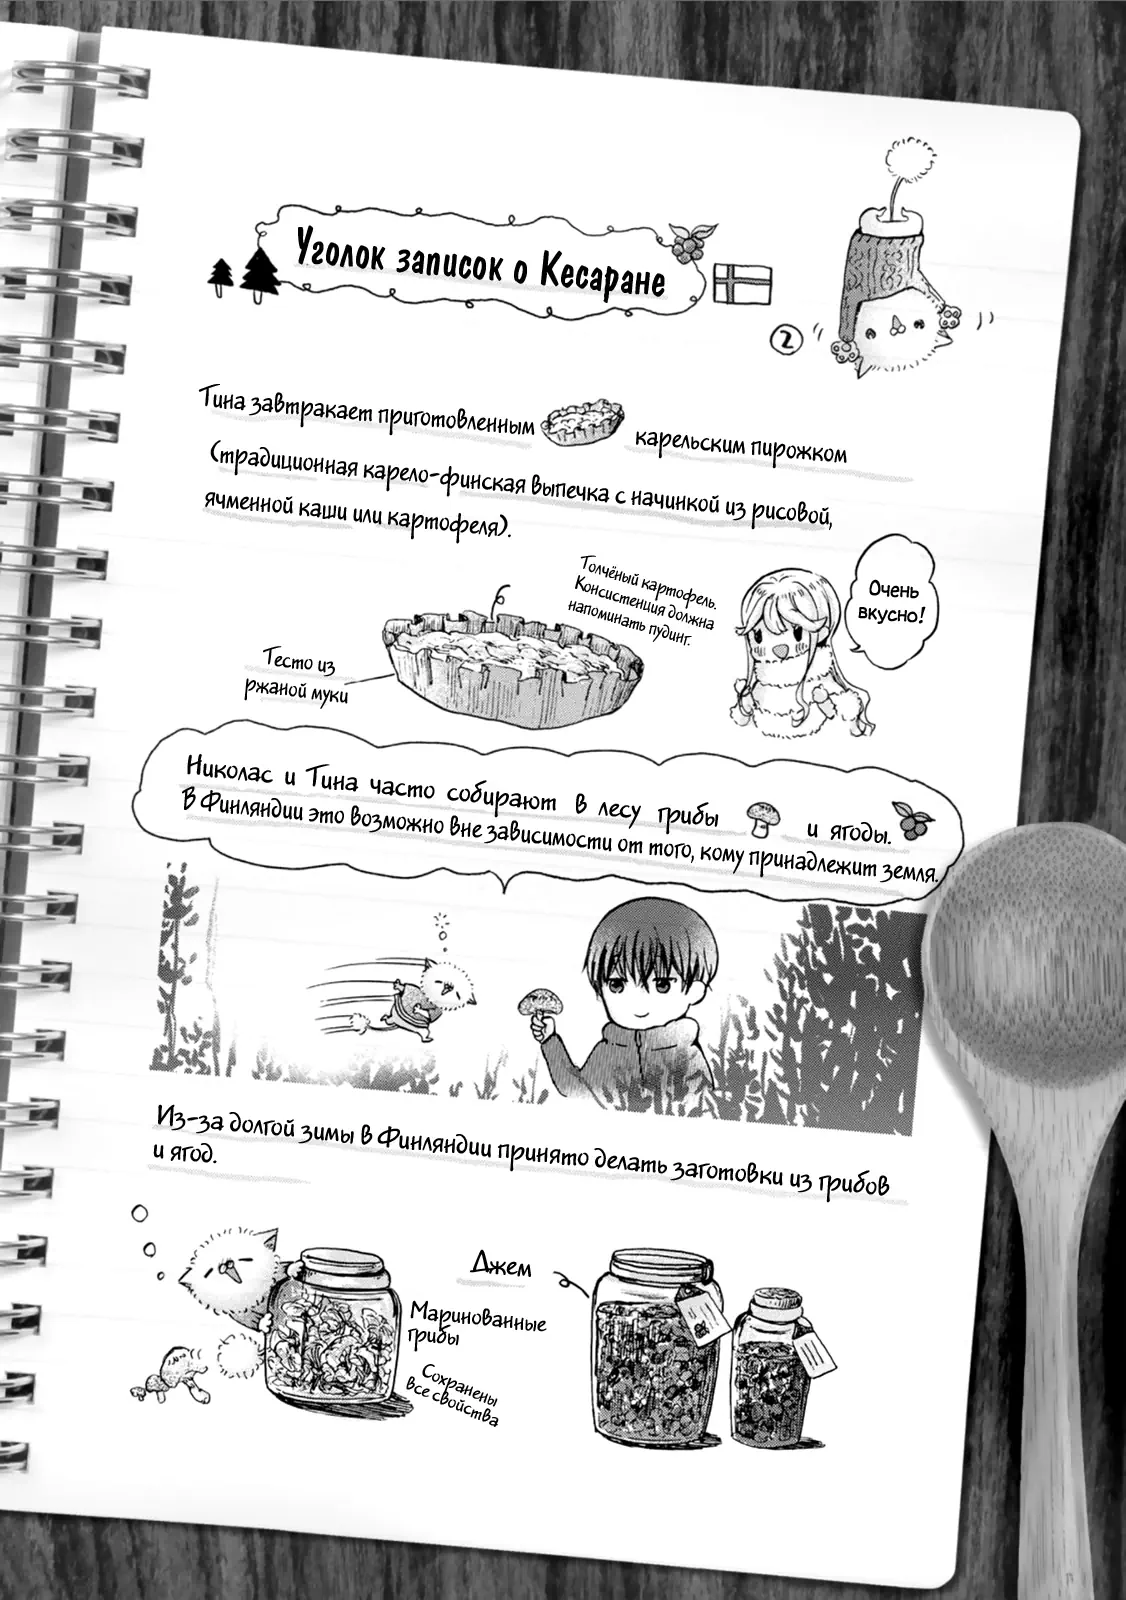 Уголок записок о Кесаране
2
Тина завтракает приготовленным карельским пирожком
(традиционная карело-финская выпечка с начинкой из рисовой,
ячменной каши или картофеля).
Толчёный картофель.
Консистенция должна
напоминать пудинг.
Очень
вкусно!
Тесто из
ржаной муки
Николас и Тина часто собирают в лесу грибы и ягоды.
В Финляндии это возможно вне зависимости от того, кому принадлежит земля.
Из-за долгой зимы в Финляндии принято делать заготовки из грибов
и ягод.
Джем
Маринованные
грибы
Сохранены
все свойства